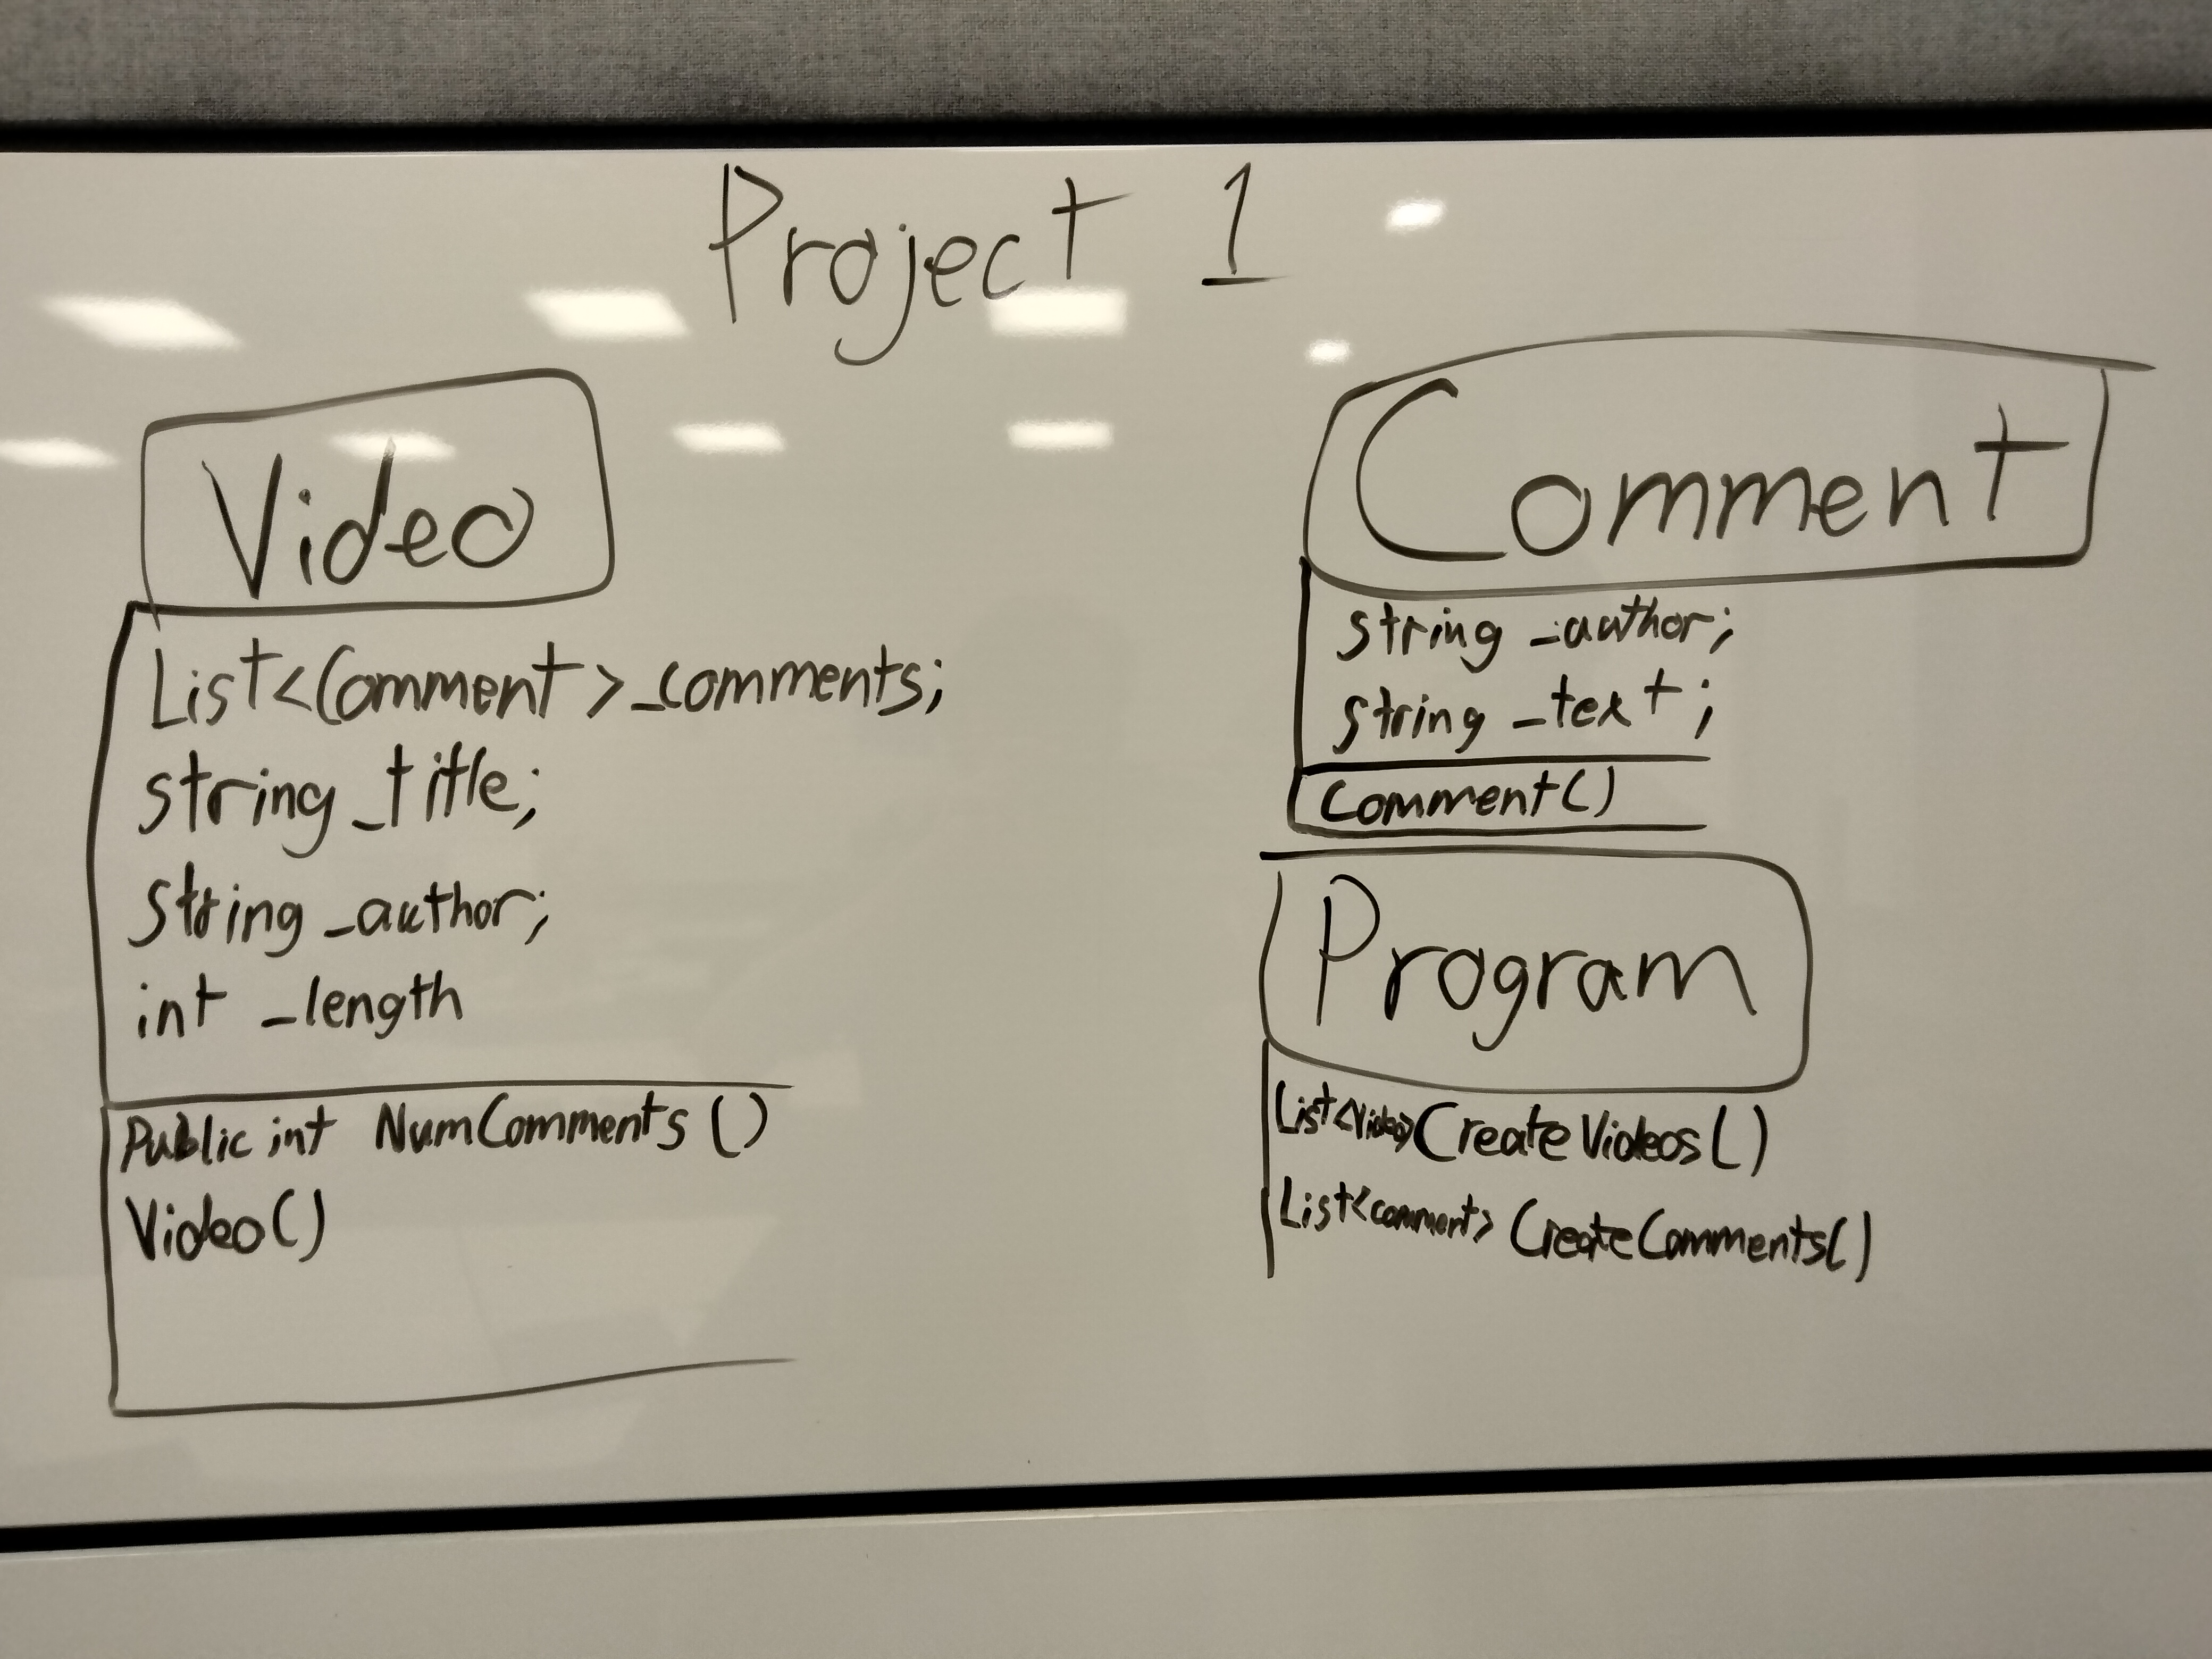 Project 1
Video
List<Comment>_comments;
string _title;
string _author;
int _length
Public int NumComments()
Video()
Comment
string _author;
string _text;
Comment()
Program
List<Video>CreateVideos()
List<comment> CreateComments()